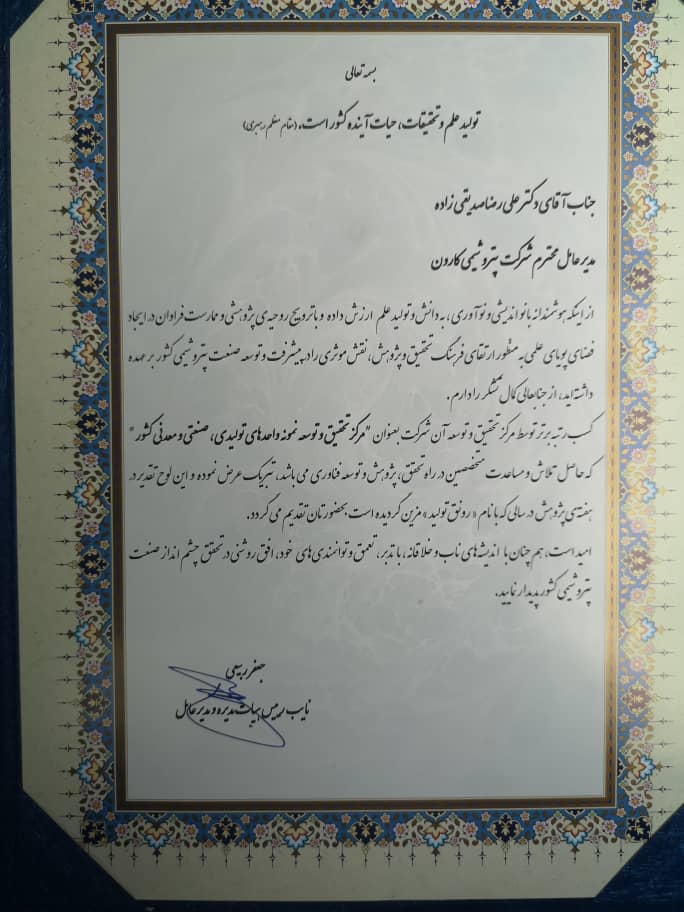 بسمه تعالی
تولید علم و تحقیقات، حیات آینده کشور است. (مقام معظم رهبری)
جناب آقای دکتر علی رضا صدیقی زاده
مدیر عامل محترم شرکت پتروشیمی کارون
از اینکه هوشمندانه با نواندیشی و نوآوری، به دانش و تولید علم ارزش داده و با ترویج روحیه‌ی پژوهشی و ممارست فراوان در ایجاد
فضای پویای علمی به منظور ارتقای فرهنگ تحقیق و پژوهش، نقش موثری را در پیشرفت و توسعه صنعت پتروشیمی کشور بر عهده
داشته‌اید، از جنابعالی کمال تشکر را دارم.
کسب رتبه برتر توسط مرکز تحقیق و توسعه آن شرکت بعنوان "مرکز تحقیق و توسعه نمونه واحدهای تولیدی، صنعتی و معدنی کشور"
که حاصل تلاش و مساعدت متخصصین در راه تحقق، پژوهش و توسعه فناوری می باشد، تبریک عرض نموده و این لوح تقدیر در
هفته‌ی پژوهش در سالی که با نام «رونق تولید» مزین گردیده است بحضورتان تقدیم می گردد.
امید است، هم چنان با اندیشه‌های ناب و خلاقانه، با تدبر، تعمق و توانمندی‌های خود، افق روشنی در تحقق چشم انداز صنعت
پتروشیمی کشور پدیدار نمایید.
جعفر ربیعی
نایب رییس هیات مدیره و مدیر عامل